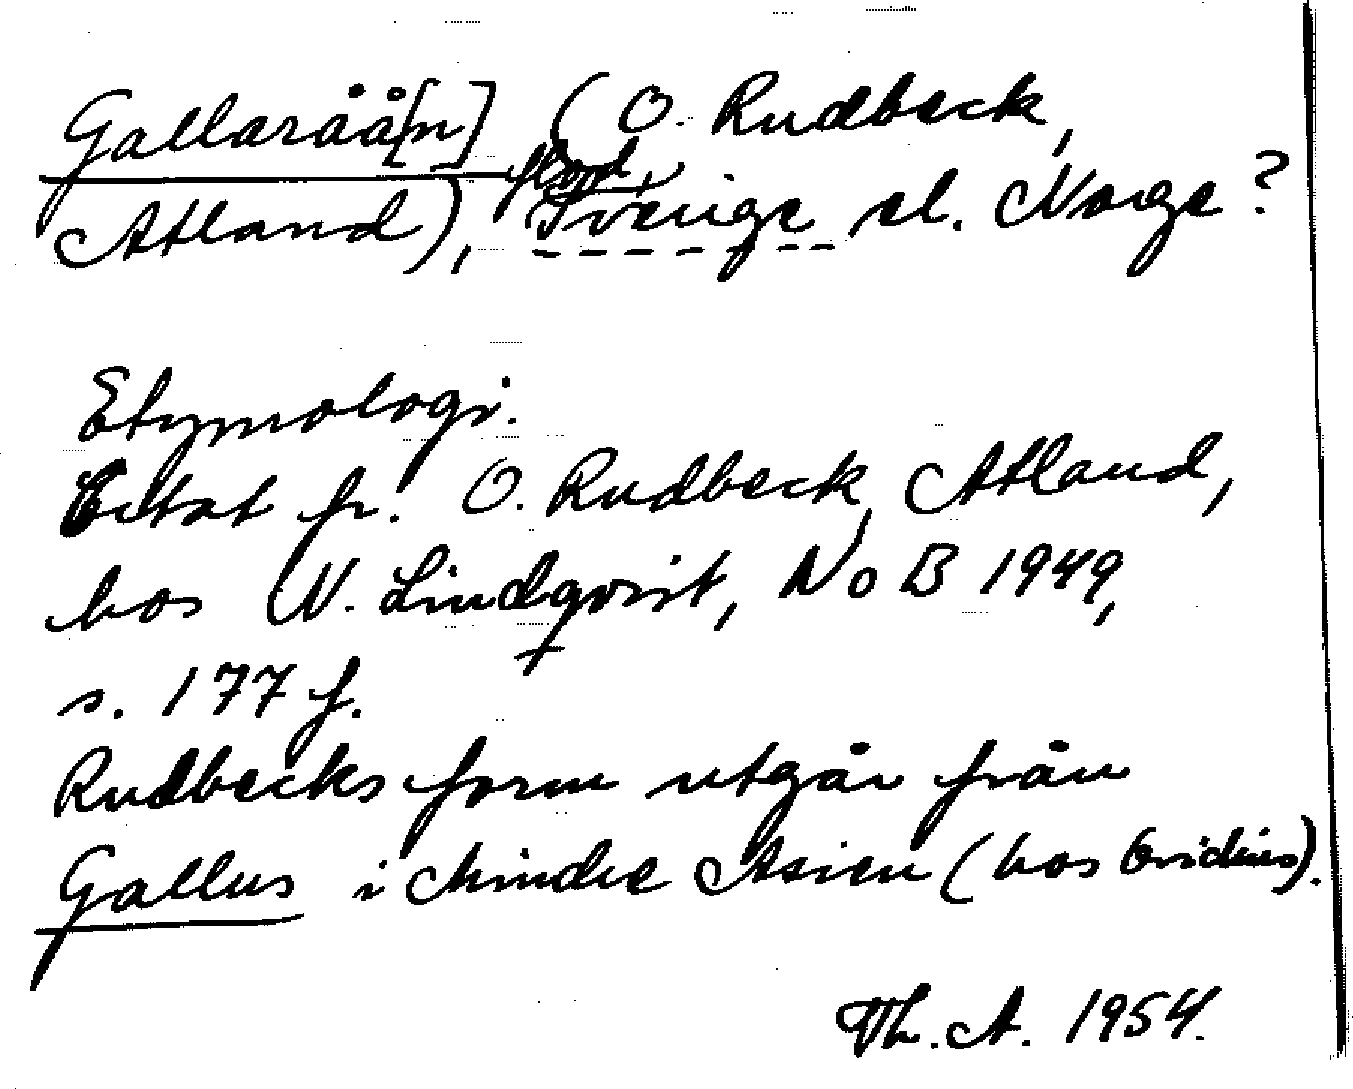 Gallaråå[n] (O. Rudbeck,
Atland), flod, Sverige el. Norge?
Etymologi.
Citat fr. O. Rudbeck, Atland,
hos N. Lindqvist, NoB 1949,
s. 177 f.
Rudbecks form utgår från
Gallus i Mindre Asien (hos Ovidius).
Th. A. 1954.